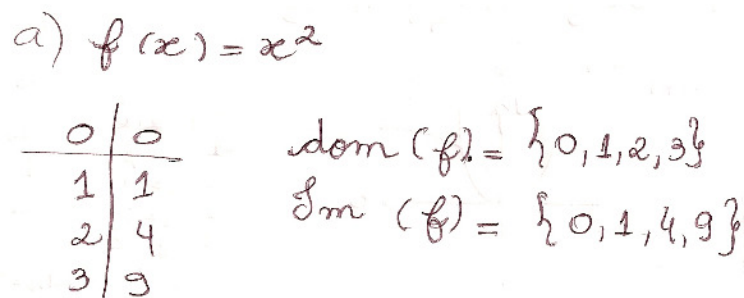 a) f(x) = x²
0 | 0
1 | 1
2 | 4
3 | 9
dom (f) = {0, 1, 2, 3}
Im (f) = {0, 1, 4, 9}